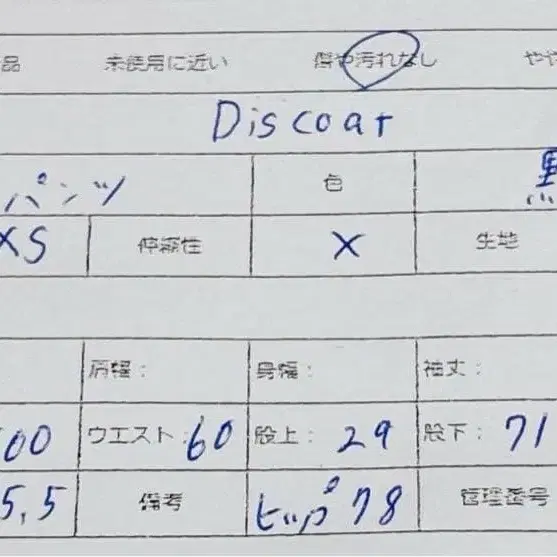 品 未使用に近い 傷や汚れなし やや
Discoat
パンツ 色 黒
XS 伸縮性 × 生地
肩幅: 身幅: 袖丈:
00 ウエスト:60 股上:29 股下:71
5.5 備考 ヒップ78 管理番号